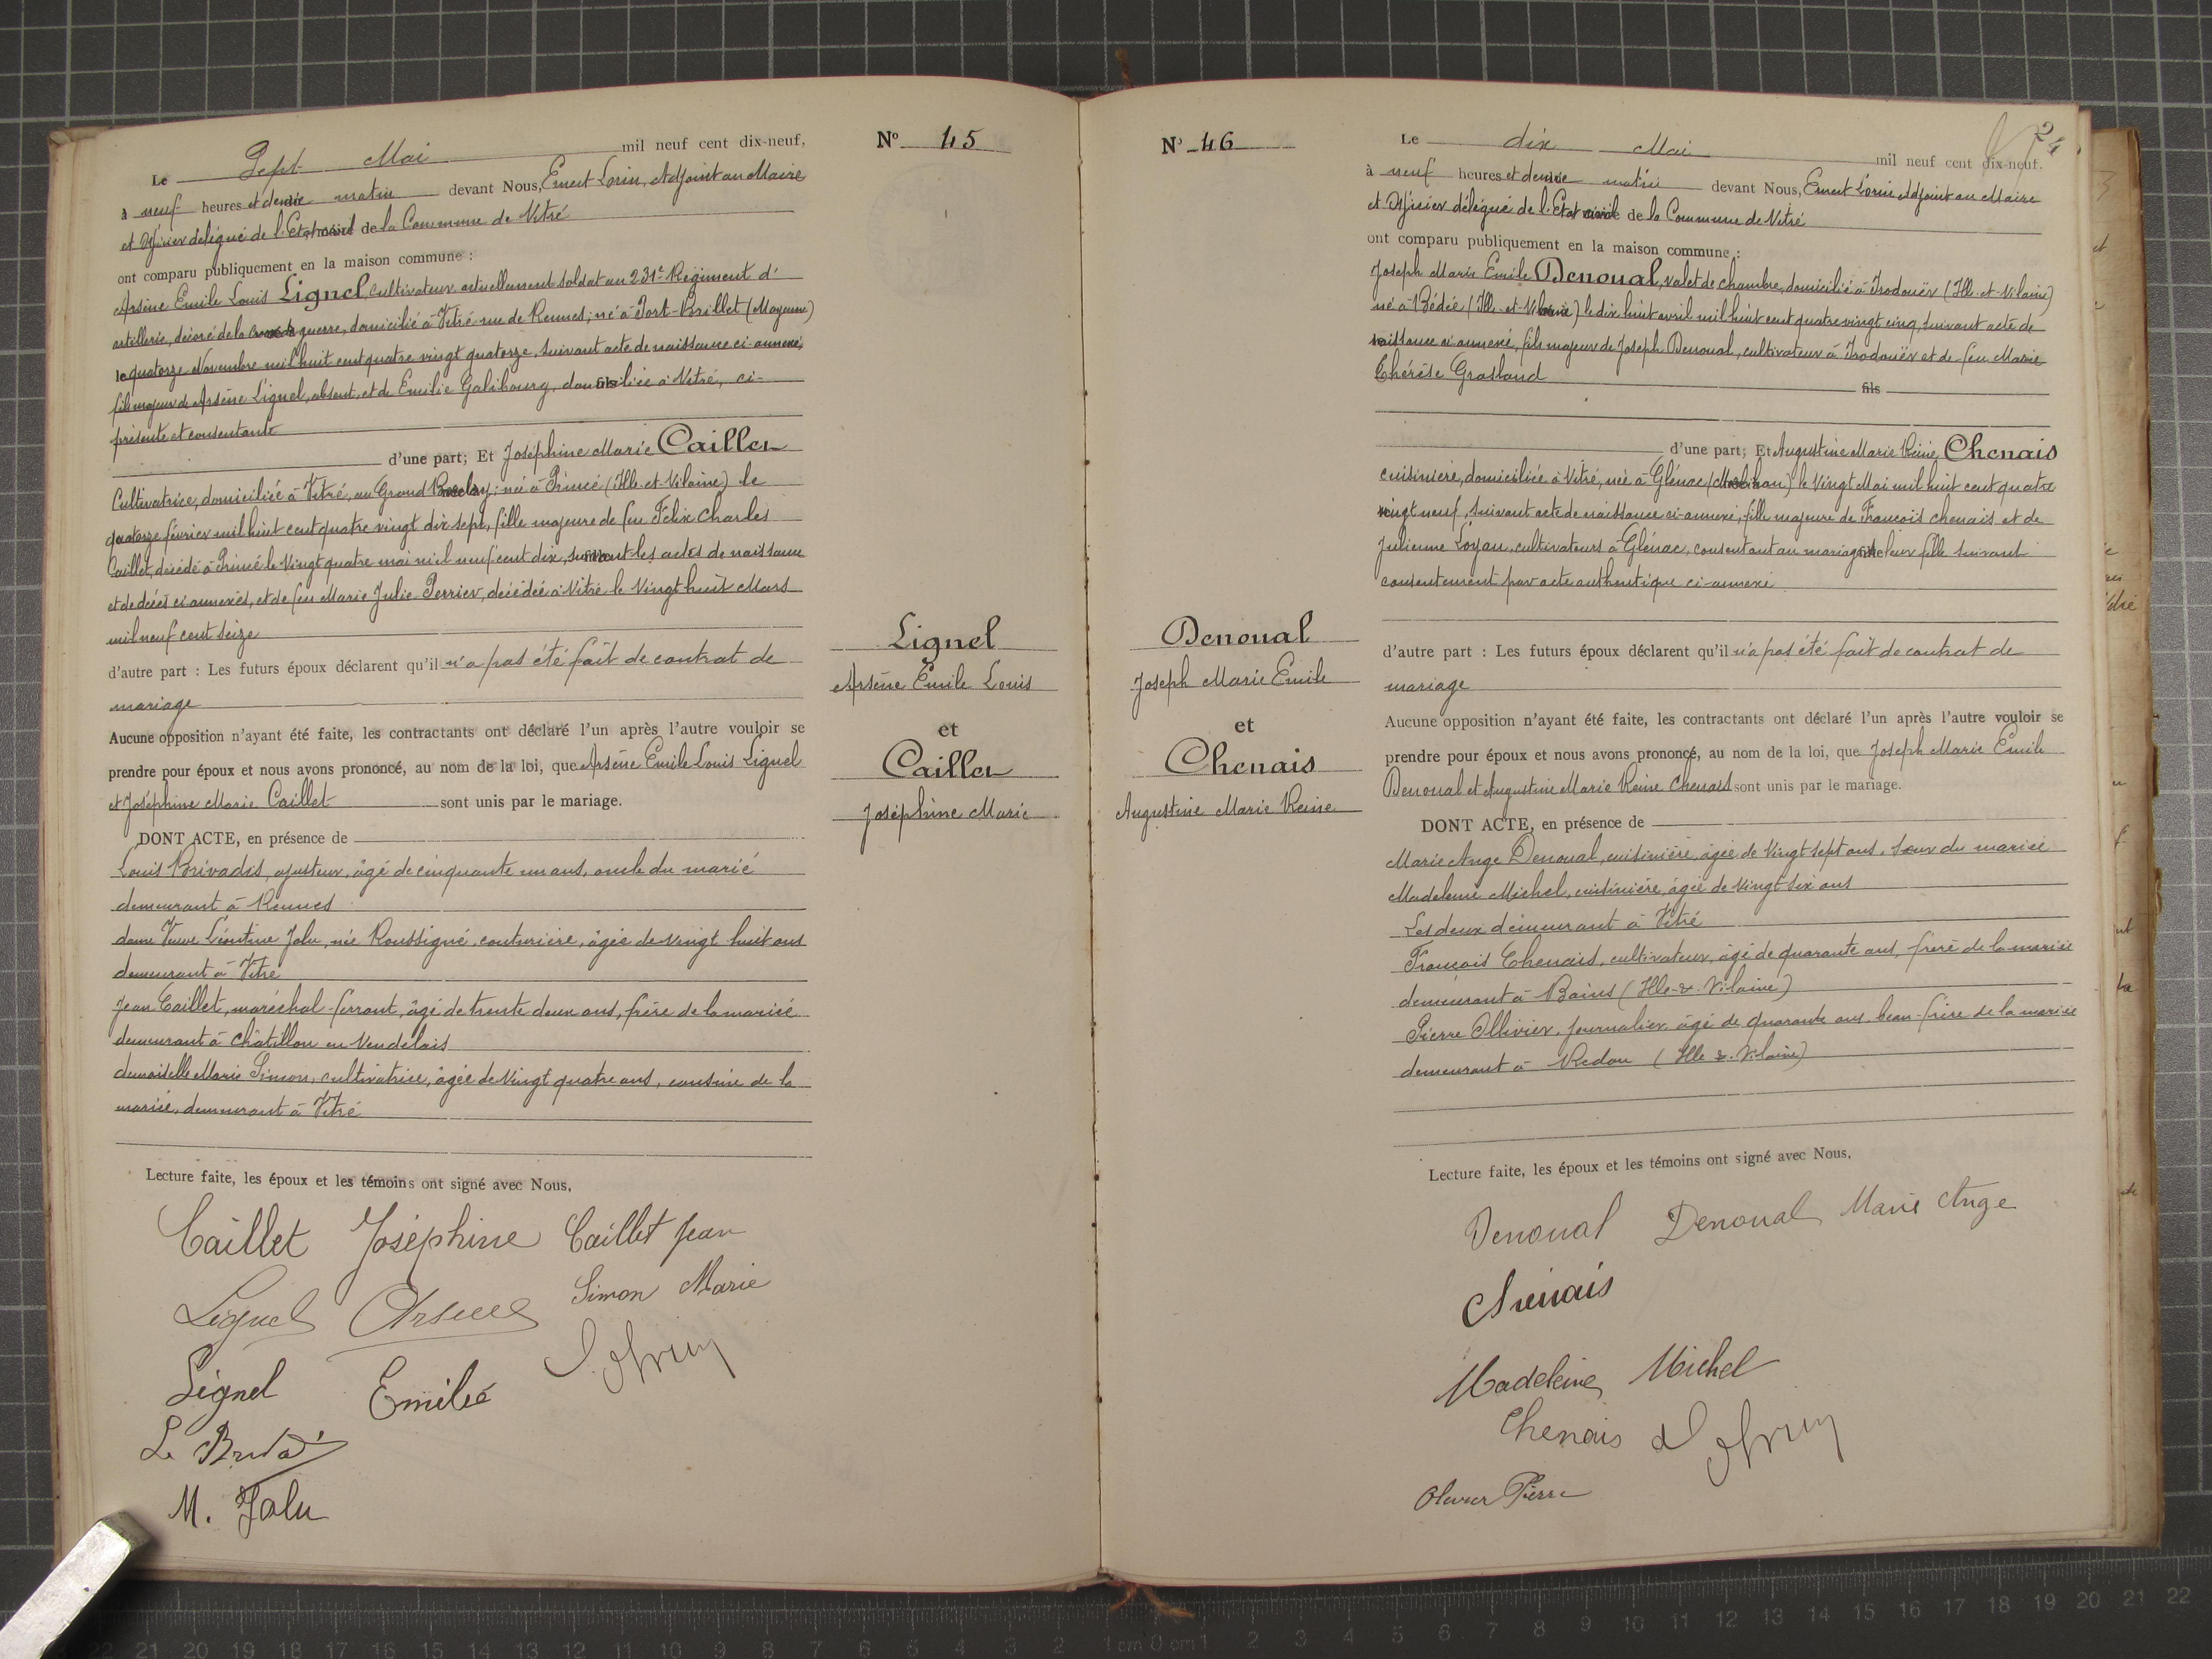 Le Sept Mai mil neuf cent dix-neuf,
à neuf heures et demie matin devant Nous, Ernest Lorin, Adjoint au Maire
et Officier délégué de l'Etat civil de la Commune de Vitré
ont comparu publiquement en la maison commune :
Arsène Emile Louis Lignel, cultivateur actuellement soldat au 231e Régiment d'
artillerie, décoré de la croix de guerre, domicilié à Vitré rue de Rennes; né à Port-Brillet (Mayenne)
le quatorze Novembre mil huit cent quatre vingt quatorze, suivant acte de naissance ci-annexé,
fils majeur de Arsène Lignel, absent, et de Emilie Galibourg, domiciliée à Vitré, ci-
fils
présente et consentante
d'une part; Et Joséphine Marie Caillet
Cultivatrice, domiciliée à Vitré, au Grand; née à Princé (Ille-et-Vilaine) le
quatorze février mil huit cent quatre vingt dix sept, fille majeure de feu Félix Charles
Caillet, décédé à Princé le Vingt quatre mai mil neuf cent dix, suivant les actes de naissance
et de décès ci-annexés, et de feu Marie Julie Perrier, décédée à Vitré le Vingt huit Mars
mil neuf cent seize
d'autre part : Les futurs époux déclarent qu'il n'a pas été fait de contrat de
mariage
Aucune opposition n'ayant été faite, les contractants ont déclaré l'un après l'autre vouloir se
prendre pour époux et nous avons prononcé, au nom de la loi, que Arsène Emile Louis Lignel
et Joséphine Marie Caillet sont unis par le mariage.
DONT ACTE, en présence de
Louis Brivadis, ajusteur, âgé de cinquante un ans, oncle du marié
demeurant à Rennes
dame Veuve Léontine Jalu, née Roussigné, couturière, âgée de vingt huit ans
demeurant à Vitré
Jean Caillet, maréchal-ferrant, âgé de trente deux ans, frère de la mariée
demeurant à Châtillon en Vendelais
demoiselle Marie Simon, cultivatrice, âgée de Vingt quatre ans, cousine de la
mariée, demeurant à Vitré
Lecture faite, les époux et les témoins ont signé avec Nous,
Caillet Joséphine Caillet Jean
Lignel Arsène Simon Marie
Lignel Emilie
M. Jalu
N° 45
Lignel
Arsène Emile Louis
et
Caillet
Joséphine Marie
N° 46
Denoual
Joseph Marie Emile
et
Chenais
Augustine Marie Reine
24
Le dix Mai mil neuf cent dix-neuf.
à neuf heures et demie matin devant Nous, Ernest Lorin Adjoint au Maire
et Officier délégué de l'Etat civil de la Commune de Vitré
ont comparu publiquement en la maison commune :
Joseph Marie Emile Denoual, valet de chambre, domicilié à Irodouër (Ille-et-Vilaine)
né à Bédée (Ille-et-Vilaine) le dix huit avril mil huit cent quatre vingt cinq, suivant acte de
naissance ci-annexé, fils majeur de Joseph Denoual, cultivateur à Irodouër et de feu Marie
Thérèse Grosland
fils
d'une part; Et Augustine Marie Reine Chenais
cuisinière, domiciliée à Vitré, née à Glénac (Morbihan) le Vingt Mai mil huit cent quatre
vingt neuf, suivant acte de naissance ci-annexé, fille majeure de François Chenais et de
Julienne Loyau, cultivateurs à Glénac, consentant au mariage de leur fille suivant
consentement par acte authentique ci-annexé
d'autre part : Les futurs époux déclarent qu'il n'a pas été fait de contrat de
mariage
Aucune opposition n'ayant été faite, les contractants ont déclaré l'un après l'autre vouloir se
prendre pour époux et nous avons prononcé, au nom de la loi, que Joseph Marie Emile
Denoual et Augustine Marie Reine Chenais sont unis par le mariage.
DONT ACTE, en présence de
Marie Ange Denoual, cuisinière, âgée de Vingt sept ans, sœur du marié
Madeleine Michel, cuisinière, âgée de Vingt six ans
Les deux demeurant à Vitré
François Chenais, cultivateur, âgé de quarante ans, frère de la mariée
demeurant à Bains (Ille-&-Vilaine)
Pierre Ollivier, journalier, âgé de quarante ans, beau-frère de la mariée
demeurant à Redon (Ille &-Vilaine)
Lecture faite, les époux et les témoins ont signé avec Nous,
Denoual Denoual Marie Ange
Chenais
Madeleine Michel
Chenais
Olivier Pierre
22 21 20 19 18 17 16 15 14 13 12 11 10 9 8 7 6 5 4 3 2 1 cm 0 cm 1 2 3 4 5 6 7 8 9 10 11 12 13 14 15 16 17 18 19 20 21 22